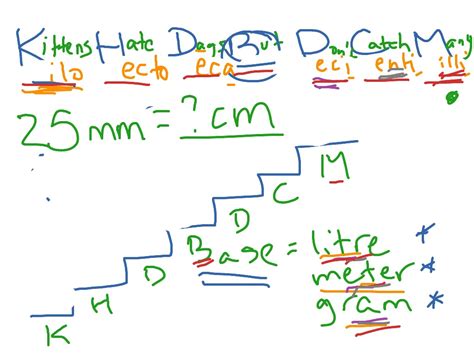 Kittens Hate Dags But Don't Catch Many
ilo ecto eca eci enti illi
25 mm = ? cm
M
C
D
Base = litre *
D meter *
H gram *
K